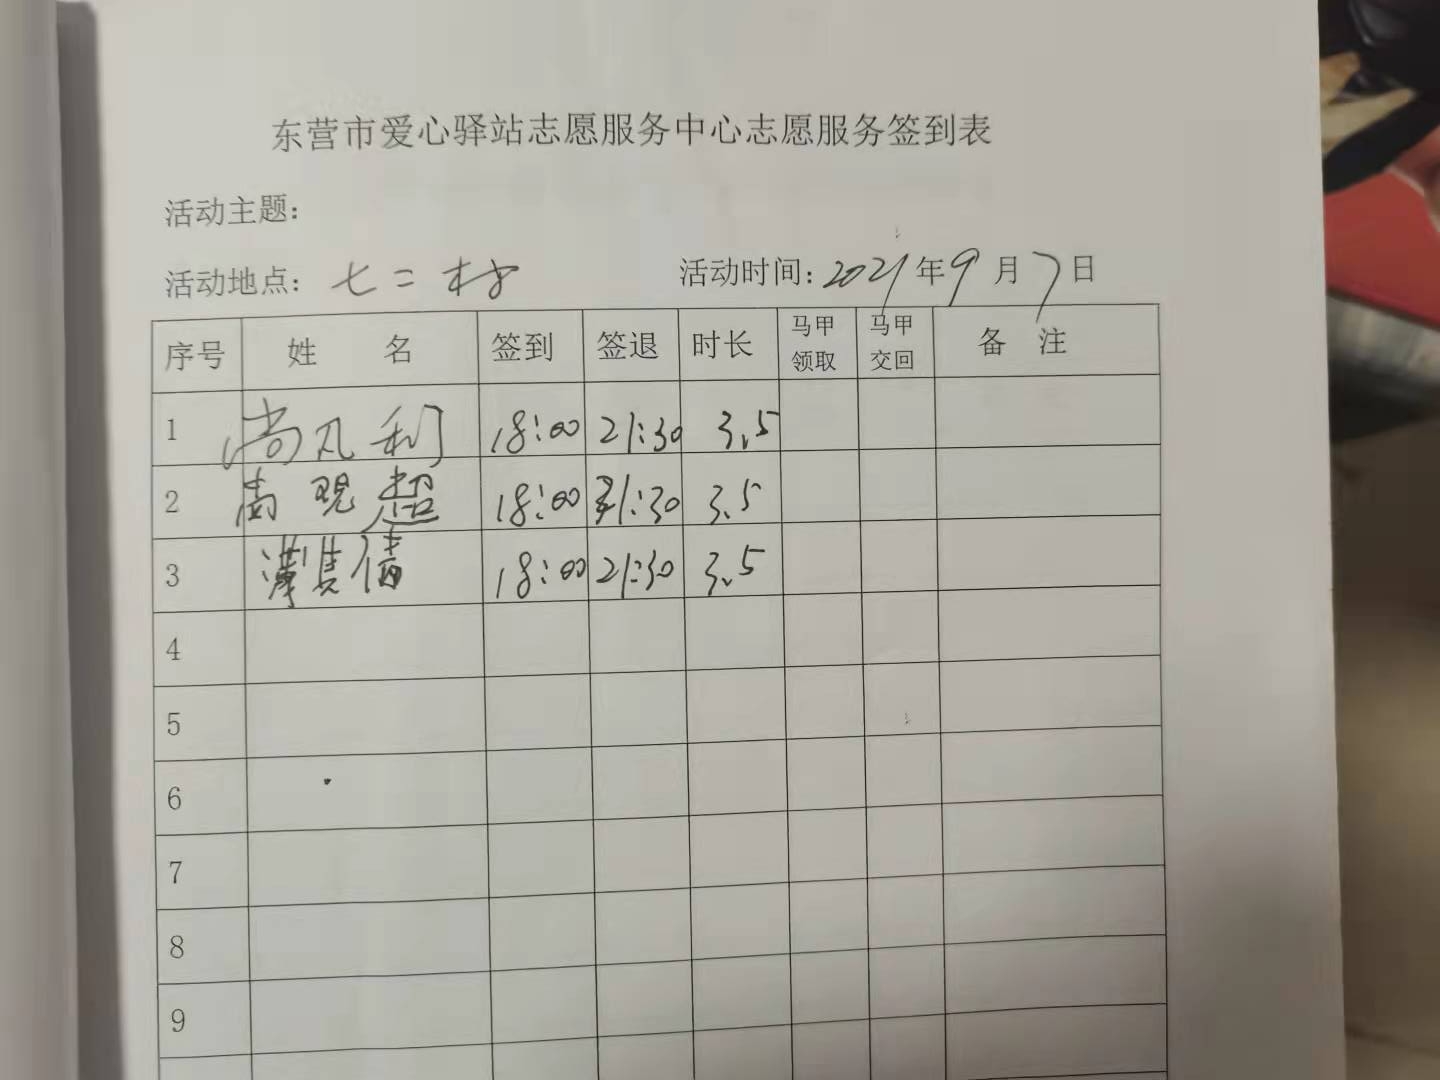 东营市爱心驿站志愿服务中心志愿服务签到表
活动主题：
活动地点：七二村 活动时间：2021年9月7日
序号 姓 名 签到 签退 时长 马甲领取 马甲交回 备 注
1 尚凡利 18:00 21:30 3.5
2 18:00 21:30 3.5
3 18:00 21:30 3.5
4
5
6
7
8
9